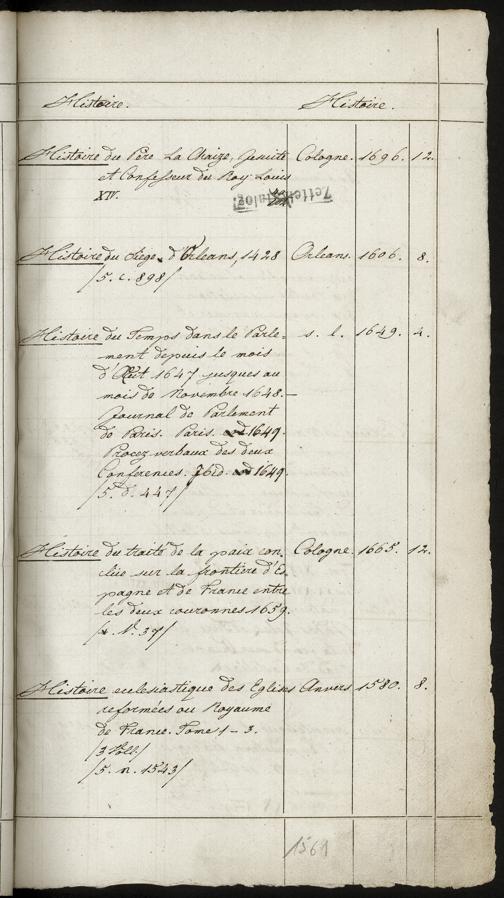 Histoire. Histoire.
Histoire du Père La Chaize, Jesuite Cologne. 1696. 12.
et Confesseur du Roy Louis
XIV.
Zettelkatalog.
Histoire du Siege d'Orleans, 1428 Orleans. 1606. 8.
/5. c. 898/
Histoire du Temps dans le Parle- s. l. 1649. 4.
ment depuis le mois
d'Aut 1647 jusques au
mois de Novembre 1648. —
Journal de Parlement
de Paris. Paris. 1649.
Procez verbaux des deux
Conferences. Ibid. 1649.
/5. d. 447/
Histoire du traité de la paix con- Cologne. 1665. 12.
clüe sur la frontiere d'Es-
pagne et de France entre
les deux couronnes 1659.
/*. N. 37/
Histoire eclesiastique des Eglises Anvers 1580. 8.
reformées au Royaume
de France. Tome 1 – 3.
/3 Voll/
/5. n. 1543/
1561